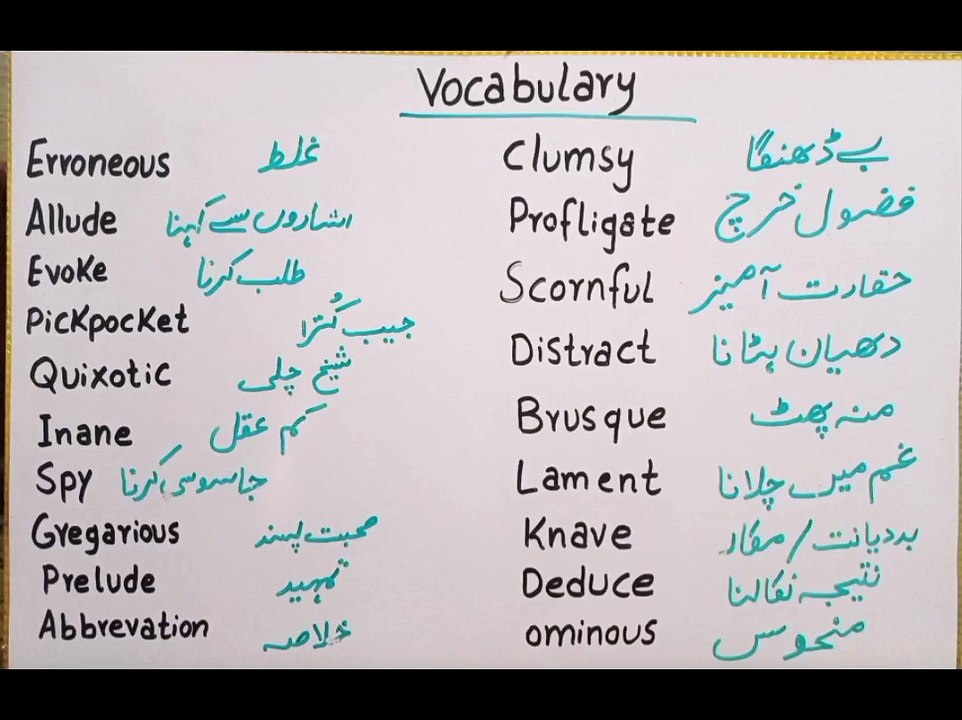 Vocabulary
Erroneous غلط
Allude اشاروں سے کہنا
Evoke طلب کرنا
Pickpocket جیب کُترا
Quixotic شیخ چلی
Inane کم عقل
Spy جاسوسی کرنا
Gregarious صحبت پسند
Prelude تمہید
Abbrevation خلاصہ
Clumsy بے ڈھنگا
Profligate فضول خرچ
Scornful حقارت آمیز
Distract دھیان ہٹانا
Brusque منہ پھٹ
Lament غم میں چلانا
Knave بددیانت / مکار
Deduce نتیجہ نکالنا
ominous منحوس